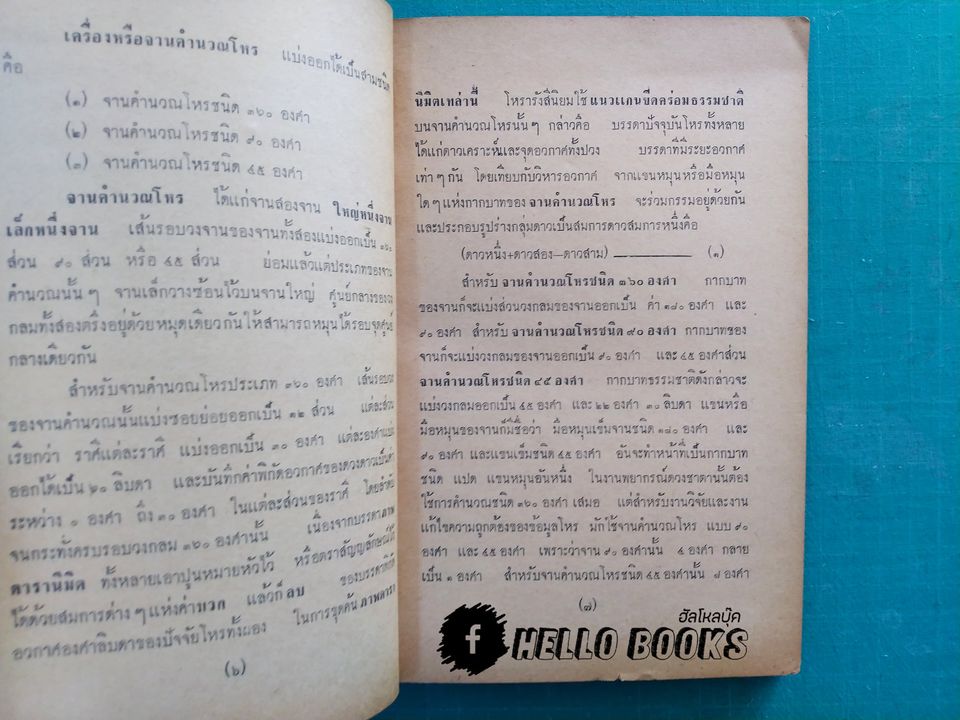 เครื่องหรือจานคำนวณโหร แบ่งออกได้เป็นสามชนิด
คือ
(๑) จานคำนวณโหรชนิด ๓๖๐ องศา
(๒) จานคำนวณโหรชนิด ๙๐ องศา
(๓) จานคำนวณโหรชนิด ๔๕ องศา
จานคำนวณโหร ได้แก่จานสองจาน ใหญ่หนึ่งจาน
เล็กหนึ่งจาน เส้นรอบวงจานของจานทั้งสองแบ่งออกเป็น ๓๖๐
ส่วน ๙๐ ส่วน หรือ ๔๕ ส่วน ย่อมแล้วแต่ประเภทของจาน
คำนวณนั้น ๆ จานเล็กวางซ้อนไว้บนจานใหญ่ ศูนย์กลางของวง
กลมทั้งสองตรึงอยู่ด้วยหมุดเดียวกันให้สามารถหมุนได้รอบจุดศูนย์
กลางเดียวกัน
สำหรับจานคำนวณโหรประเภท ๓๖๐ องศา เส้นรอบวง
ของจานคำนวณนั้นแบ่งซอยย่อยออกเป็น ๑๒ ส่วน แต่ละส่วน
เรียกว่า ราศีแต่ละราศี แบ่งออกเป็น ๓๐ องศา แต่ละองศาแบ่ง
ออกได้เป็น ๖๐ ลิบดา และบันทึกค่าพิกัดอวกาศของดวงดาวเป็นค่า
ระหว่าง ๐ องศา ถึง ๓๐ องศา ในแต่ละส่วนของราศี โดยลำดับ
จนกระทั่งครบรอบวงกลม ๓๖๐ องศานั้น เนื่องจากบรรดาภาพ
ดารานิมิต ทั้งหลายเอาปุนหมายหัวไว้ หรือตราสัญญลักษณ์ไว้
ได้ด้วยสมการต่าง ๆ แห่งค่าบวก แล้วก็ ลบ ของบรรดาพิกัด
อวกาศองศาลิบดาของปัจจัยโหรทั้งผอง ในการขุดค้น ภาพดารา
(๖)
นิมิตเหล่านี้ โหรารังสีนิยมใช้ แนวแกนขีดคร่อมธรรมชาติ
บนจานคำนวณโหรนั้น ๆ กล่าวคือ บรรดาปัจจุบันโหรทั้งหลาย
ได้แก่ดาวเคราะห์และจุดอวกาศทั้งปวง บรรดาที่มีระยะอวกาศ
เท่า ๆ กัน โดยเทียบกับวิหารอวกาศ จากแขนหมุนหรือมือหมุน
ใด ๆ แห่งกากบาทของ จานคำนวณโหร จะร่วมกรรมอยู่ด้วยกัน
และประกอบรูปร่างกลุ่มดาวเป็นสมการดาวสมการหนึ่งคือ
(ดาวหนึ่ง+ดาวสอง—ดาวสาม) ———— (๑)
สำหรับ จานคำนวณโหรชนิด ๓๖๐ องศา กากบาท
ของจานก็จะแบ่งส่วนวงกลมของจานออกเป็น ค่า ๑๘๐ องศา และ
๙๐ องศา สำหรับ จานคำนวณโหรชนิด ๙๐ องศา กากบาทของ
จานก็จะแบ่งวงกลมของจานออกเป็น ๙๐ องศา และ ๔๕ องศาส่วน
จานคำนวณโหรชนิด ๔๕ องศา กากบาทธรรมชาติดังกล่าวจะ
แบ่งวงกลมออกเป็น ๔๕ องศา และ ๒๒ องศา ๓๐ ลิบดา แขนหรือ
มือหมุนของจานก็มีชื่อว่า มือหมุนเข็มจานชนิด ๑๘๐ องศา และ
๙๐ องศา และแขนเข็มชนิด ๔๕ องศา อันจะทำหน้าที่เป็นกากบาท
ชนิด แปด แขนหมุนอันหนึ่ง ในงานพยากรณ์ดวงชาตานั้นต้อง
ใช้การคำนวณชนิด ๓๖๐ องศา เสมอ แต่สำหรับงานวิจัยและงาน
แก้ไขความถูกต้องของข้อมูลโหร มักใช้จานคำนวณโหร แบบ ๙๐
องศา และ ๔๕ องศา เพราะว่าจาน ๙๐ องศานั้น ๔ องศา กลาย
เป็น ๑ องศา สำหรับจานคำนวณโหรชนิด ๔๕ องศานั้น ๘ องศา
(๗)
ฮัลโหลบุ๊ค
f HELLO BOOKS